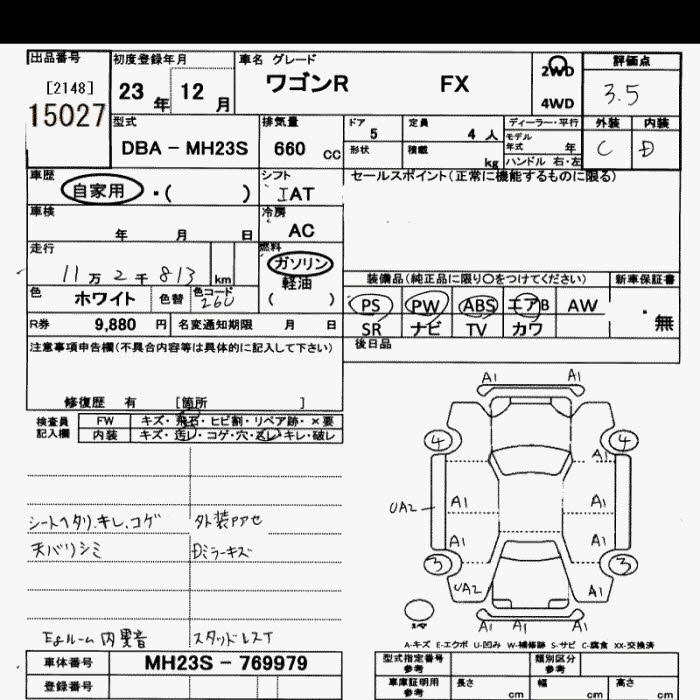 出品番号 初度登録年月 車名 グレード 評価点
[2148] 23年 12月 ワゴンR FX 2WD 3.5
15027 4WD
型式 排気量 ドア 定員 ディーラー・平行 外装 内装
DBA - MH23S 660 cc 5 4人 モデル年式 年 C D
形状 積載 kg ハンドル 右・左
車歴 シフト セールスポイント(正常に機能するものに限る)
自家用 ・( ) IAT
車検 冷房
年 月 日 AC
走行 燃料
11万2千813km ガソリン 装備品(純正品に限り○をつけてください) 新車保証書
色 色替 色コード 軽油
ホワイト 26U ( ) PS PW ABS エアB AW ・無
R券 9,880 円 名変通知期限 月 日 SR ナビ TV カワ
注意事項申告欄(不具合内容等は具体的に記入して下さい) 後日品
修復歴 有 [箇所 ]
検査員記入欄 FW キズ・飛石・ヒビ割・リペア跡・×要
内装 キズ・汚レ・コゲ・穴・スレ・キレ・破レ
A1 A1
4 4
A1
UA2 A1 A1
A1 A1
3 3
UA2 A1
A1 A1 A1
シートヘタリ.キレ.コゲ 外装
天バリシミ Dミラーキズ
Egルーム内異音 スタッドレス
A-キズ E-エクボ U-凹み W-補修跡 S-サビ C-腐食 XX-交換済
車体番号 MH23S - 769979 型式指定番号 参考 類別区分 参考
登録番号 車庫証明用 参考 長さ cm 幅 cm 高さ cm